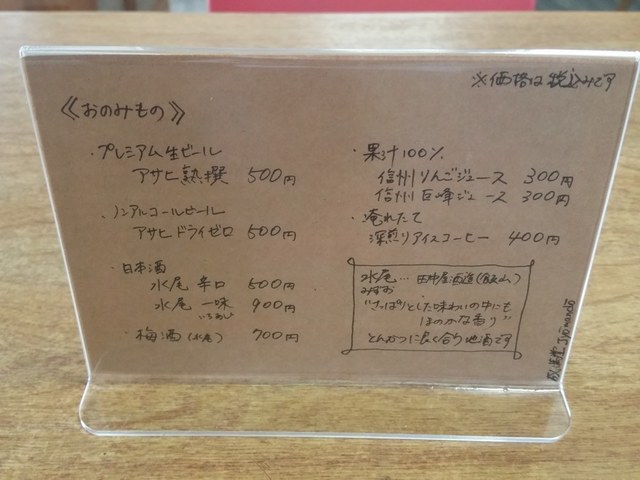 ※価格は税込みです
《おのみもの》
・プレミアム生ビール
アサヒ熟撰 500円
・ノンアルコールビール
アサヒドライゼロ 500円
・日本酒
水尾 辛口 500円
水尾 一味 900円
いちみ
・梅酒(水尾) 700円
・果汁100%
信州りんごジュース 300円
信州巨峰ジュース 300円
・淹れたて
深煎りアイスコーヒー 400円
水尾… 田中屋酒造(飯山)
みずお
"さっぱりとした味わいの中にも
ほのかな香り"
とんかつに良く合う地酒です